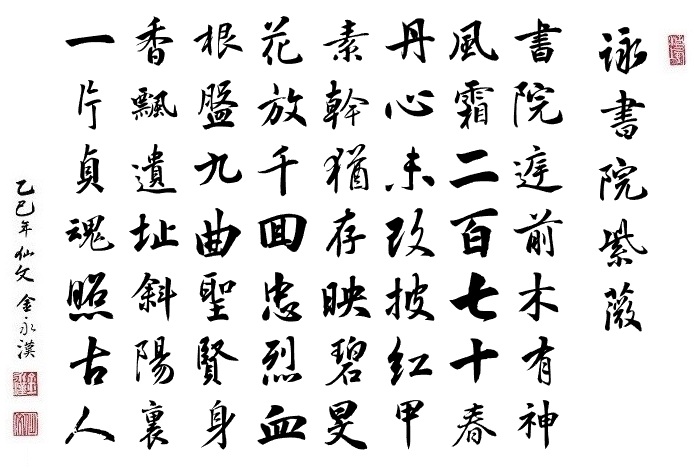 詠書院紫薇
書院庭前木有神
風霜二百七十春
丹心未改披紅甲
素幹猶存映碧旻
花放千囬忠烈血
根盤九曲聖賢身
香飄遺址斜陽裏
一片貞魂照古人
乙巳年 仙文 金永漢